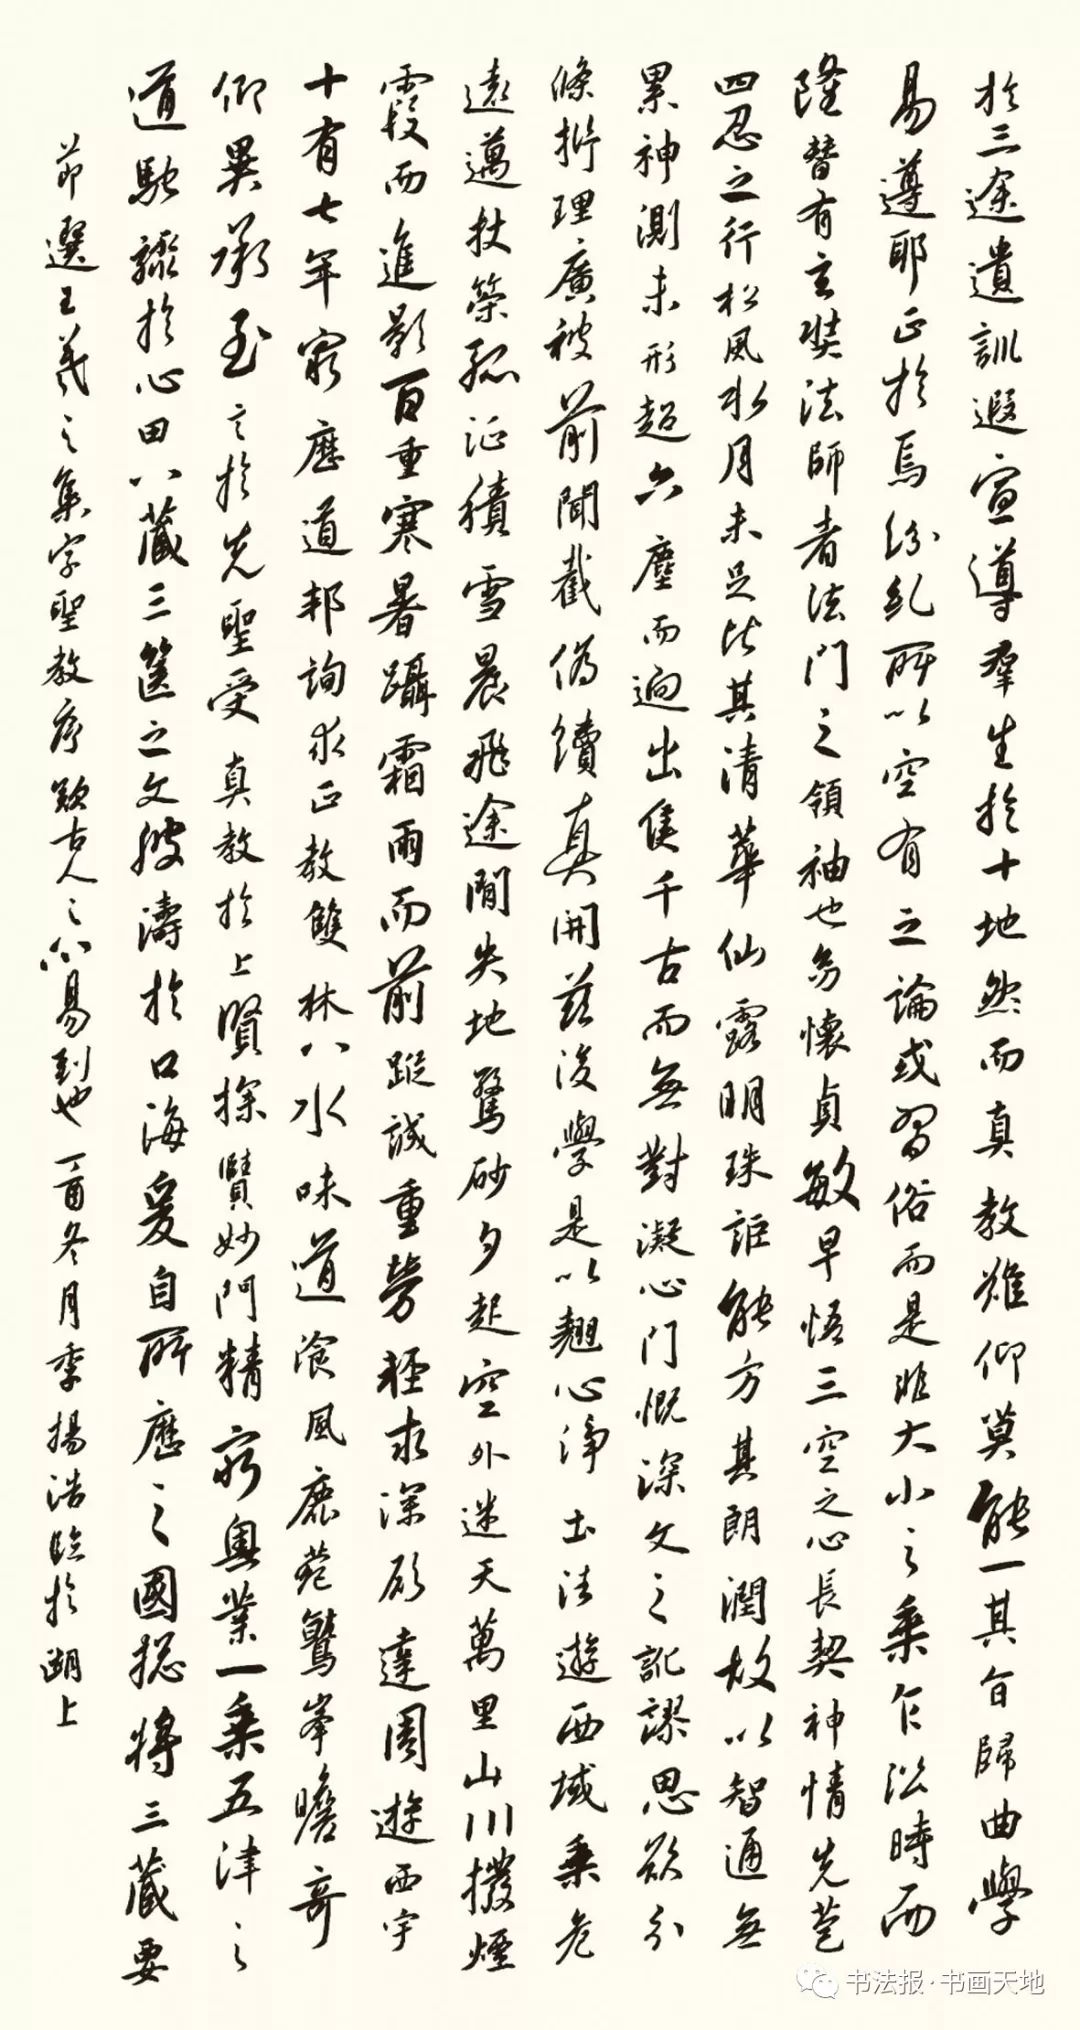 於三途遺訓遐宣導羣生於十地然而真教難仰莫能一其旨歸曲學
易遵耶正於焉紛乱所以空有之論或習俗而是非大小之乘乍沿時而
隆替有玄奘法師者法門之領袖也幼懷貞敏早悟三空之心長契神情先苞
四忍之行松風水月未足比其清華仙露明珠詎能方其朗潤故以智通無
累神測未形超六塵而逈出隻千古而無對凝心門慨深文之訛謬思欲分
條析理廣被前聞截偽續真開茲後學是以翹心淨土法遊西域乘危
遠邁杖策孤征積雪晨飛途間失地驚砂夕起空外迷天萬里山川撥煙
霞而進影百重寒暑躡霜雨而前蹤誠重勞輕求深願達周遊西宇
十有七年窮歷道邦詢求正教雙林八水味道飡風鹿菀鷲峯瞻奇
仰異承至言於先聖受真教於上賢探賾妙門精窮奧業一乘五津之
道馳驟於心田八藏三篋之文波濤於口海爰自所歷之國揔將三藏要
節選王羲之集字聖教序歎古人之不易到也丁酉冬月季揚浩臨於湖上
书法报·书画天地